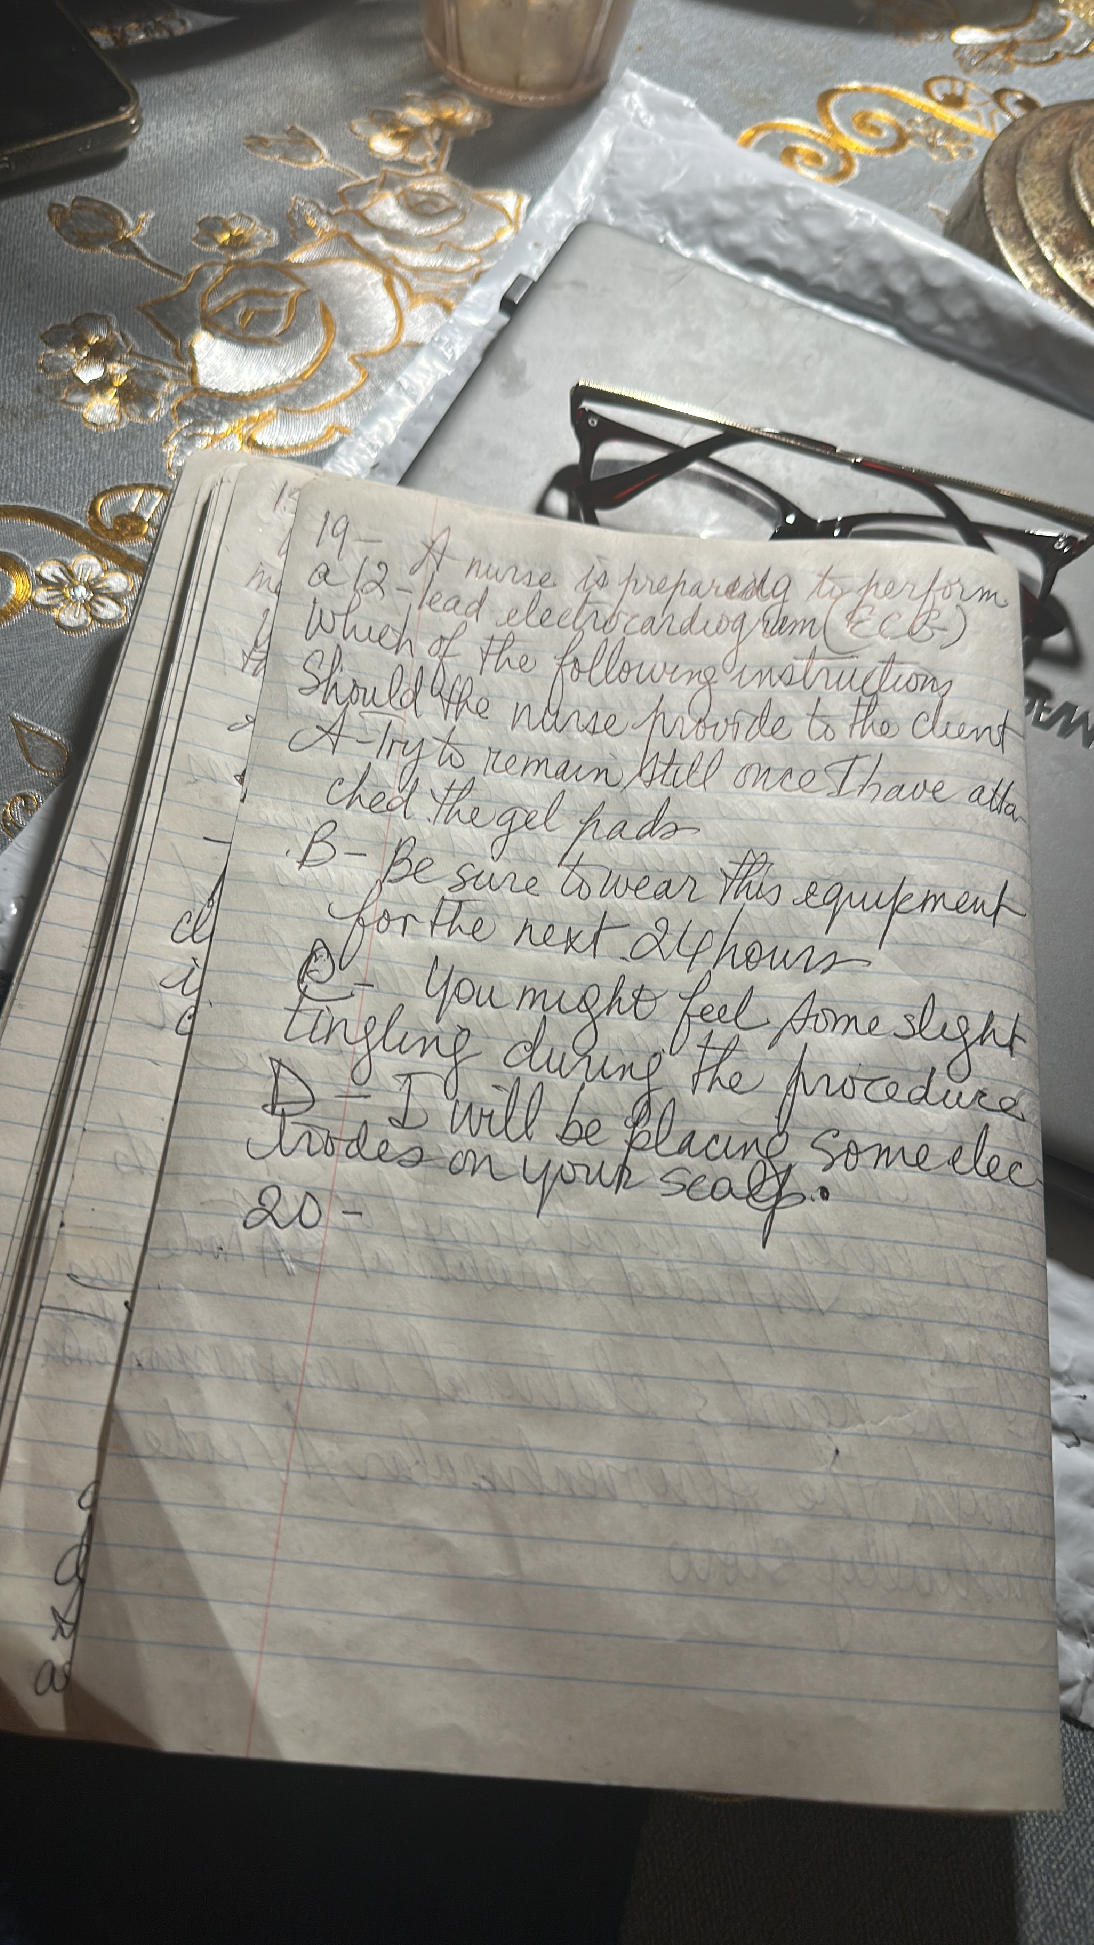 19- A nurse is preparing to perform
a 12-lead electrocardiogram (ECG)
Which of the following instructions
Should the nurse provide to the client
A- Try to remain still once I have atta
ched the gel pads
B- Be sure to wear this equipment
for the next 24 hours
C- You might feel some slight
tingling during the procedure
D- I will be placing some elec
trodes on your scalp.
20-